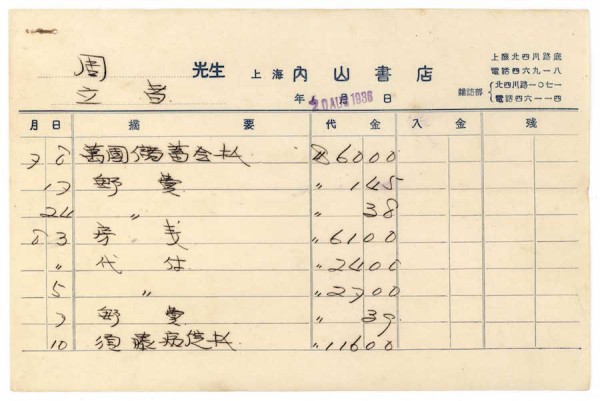 周 先生 上海 內山書店
上海北四川路底
電話四六九一八
雜誌部 北四川路一〇七一
電話四六一一四
立替
年 月 日
20 AUG 1936
月 日 摘要 代金 入金 残
7 6 萬國儲蓄会払 6000
13 郵費 〃 145
24 〃 〃 38
8 3 房 〃 6100
〃 代付 〃 2400
5 〃 〃 2700
7 郵費 〃 39
10 須藤病院払 〃 11600